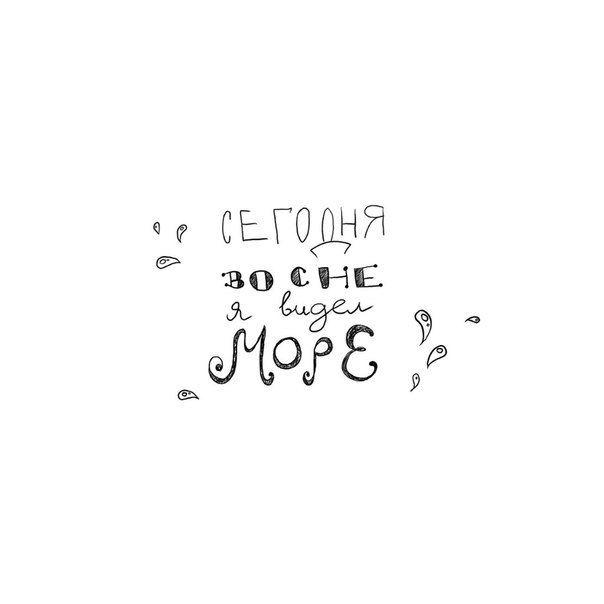 СЕГОДНЯ
ВО СНЕ
я видел
МОРЕ